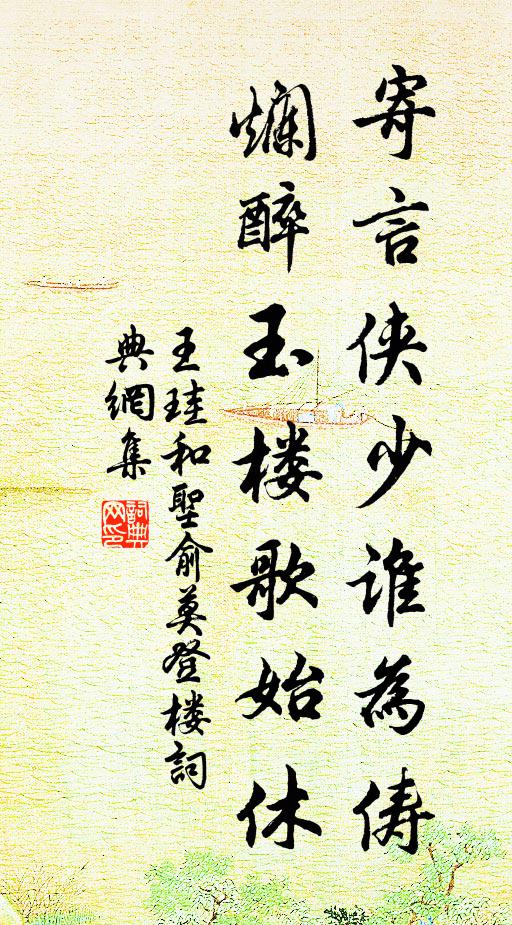 寄言侠少谁為俦
爛醉玉楼歌始休
王珪和聖俞莫登楼詞
典網集
詞典网印